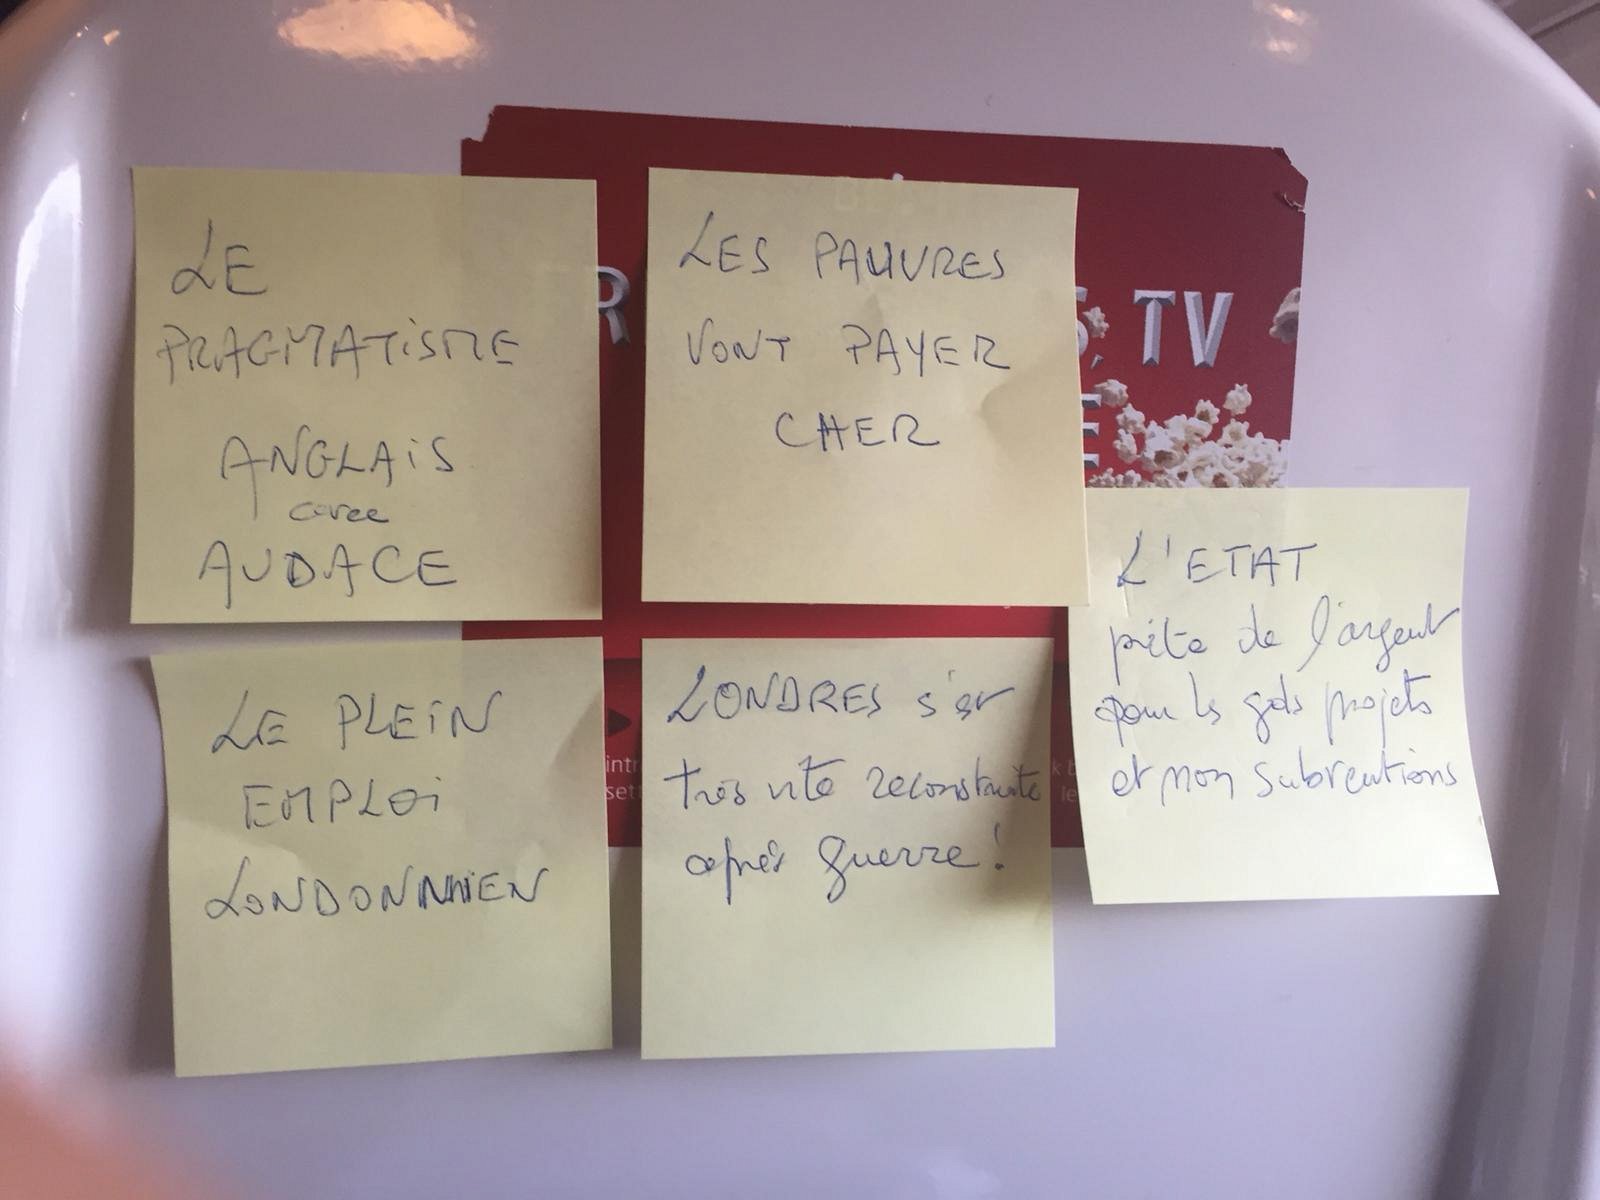 LE
PRAGMATISME
ANGLAIS
avec
AUDACE
LES PAUVRES
VONT PAYER
CHER
L'ETAT
prête de l'argent
pour les gds projets
et non subventions
LE PLEIN
EMPLOI
LONDONNIEN
LONDRES s'est
très vite reconstruite
après guerre !
R
S, TV
E
intr
set
k b
le